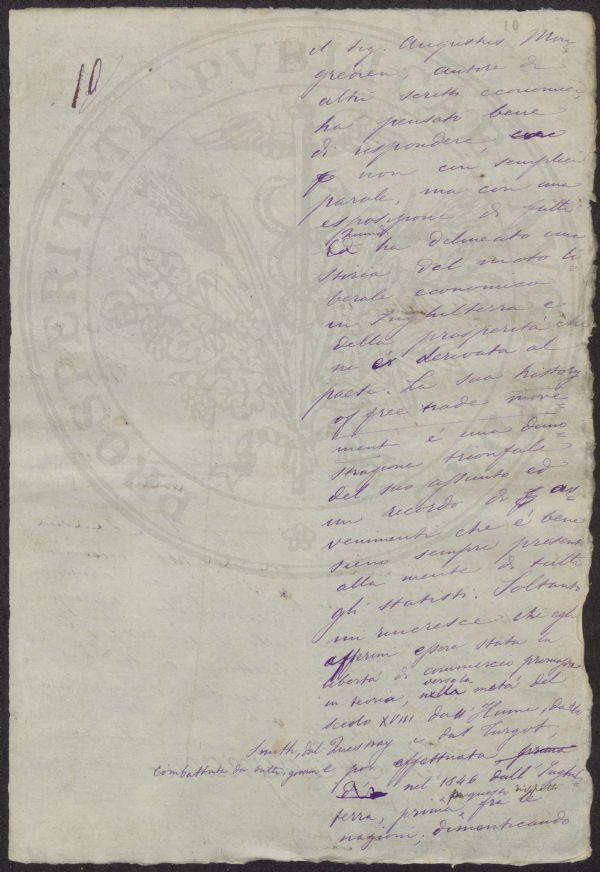 10
10
Il Sig. Augustus Mon-
gredien, autore di
altri scritti economici,
ha pensato bene
di rispondere,
non con semplici
parole, ma con una
esposizione di fatti
Ed ha delineato una
storia del moto li-
berale economico
in Inghilterra e
della prosperità che
ne è derivata al
paese. La sua history
of free trade move-
ment è una dimo-
strazione trionfale
del suo assunto ed
un ricordo di av-
venimenti che è bene
sieno sempre presenti
alla mente di tutti
gli statisti. Soltanto
mi rincresce ch'egli
affermi essere stata la
libertà di commercio promossa
in teoria, verso la metà del
secolo XVIII dall'Hume, dallo
Smith, dal Quesnay e dal Turgot,
combattuta da tutti i governi e poi effettuata prima
nel 1846 dall'Inghil-
terra, prima per questo rispetto fra le
nazioni, dimenticando
PROSPERITATI PVBLICAE